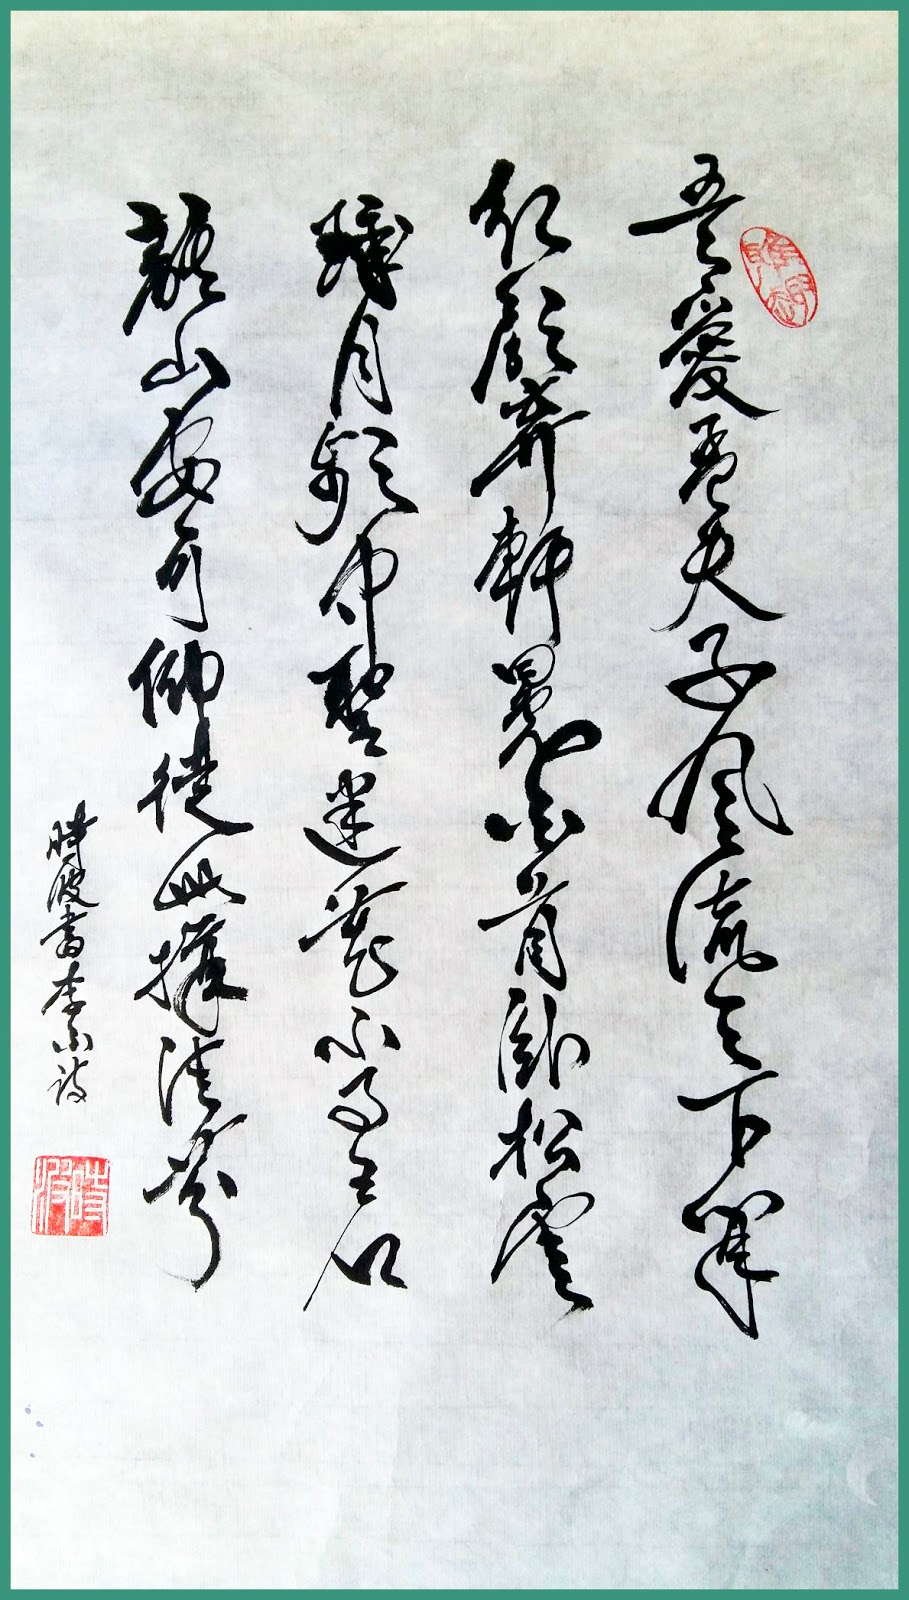 吾愛孟夫子風流天下聞
紅顏棄軒冕白首臥松雲
醉月頻中聖迷花不事君
山安可仰徒此揖清芬
時波書李白詩
時波